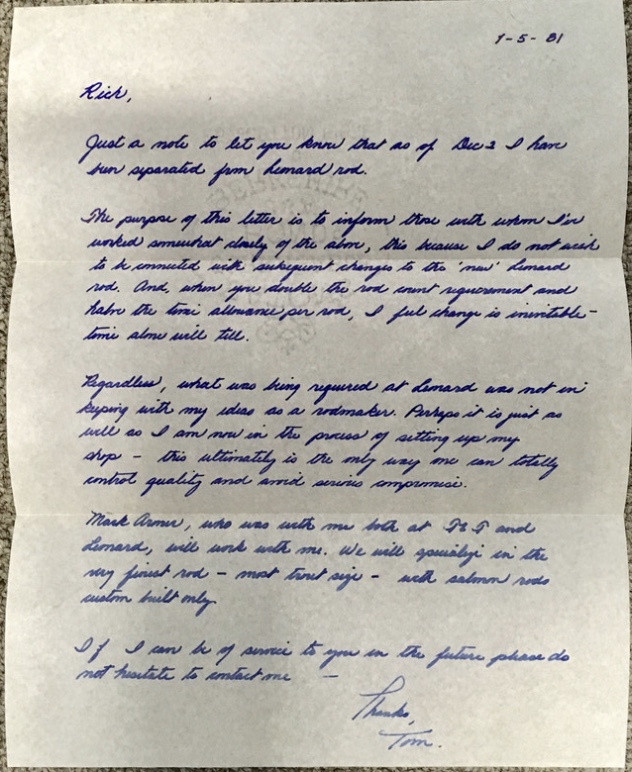 1-5-81
Rick,
Just a note to let you know that as of Dec 2 I have
been separated from Leonard rod.
The purpose of this letter is to inform those with whom I've
worked somewhat closely of the above, this because I do not wish
to be connected with subsequent changes to the 'new' Leonard
rod. And, when you double the rod count requirement and
halve the time allowance per rod, I feel change is inevitable -
time alone will tell.
Regardless, what was being required at Leonard was not in
keeping with my ideas as a rodmaker. Perhaps it is just as
well as I am now in the process of setting up my
shop - this ultimately is the only way one can totally
control quality and avoid serious compromise.
Mark Aroner, who was with me both at T&T and
Leonard, will work with me. We will specialize in the
very finest rod - most trout size - with salmon rods
custom built only.
If I can be of service to you in the future please do
not hesitate to contact me -
Thanks,
Tom.